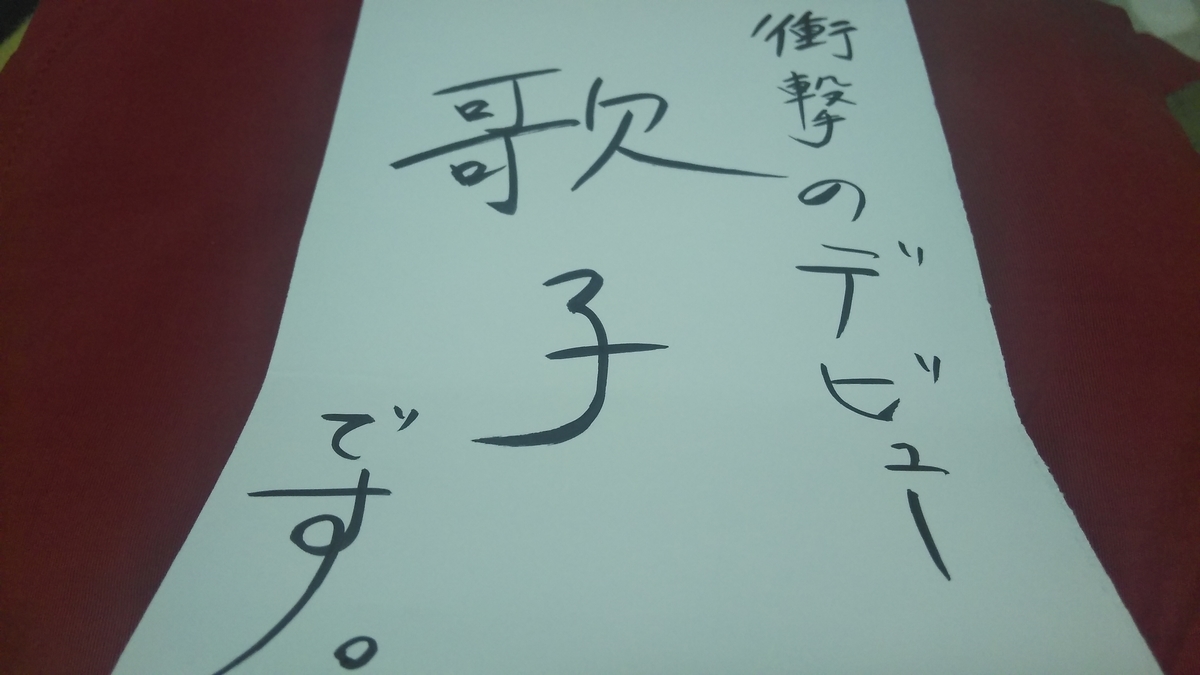 衝撃のデビュー
歌子
です。